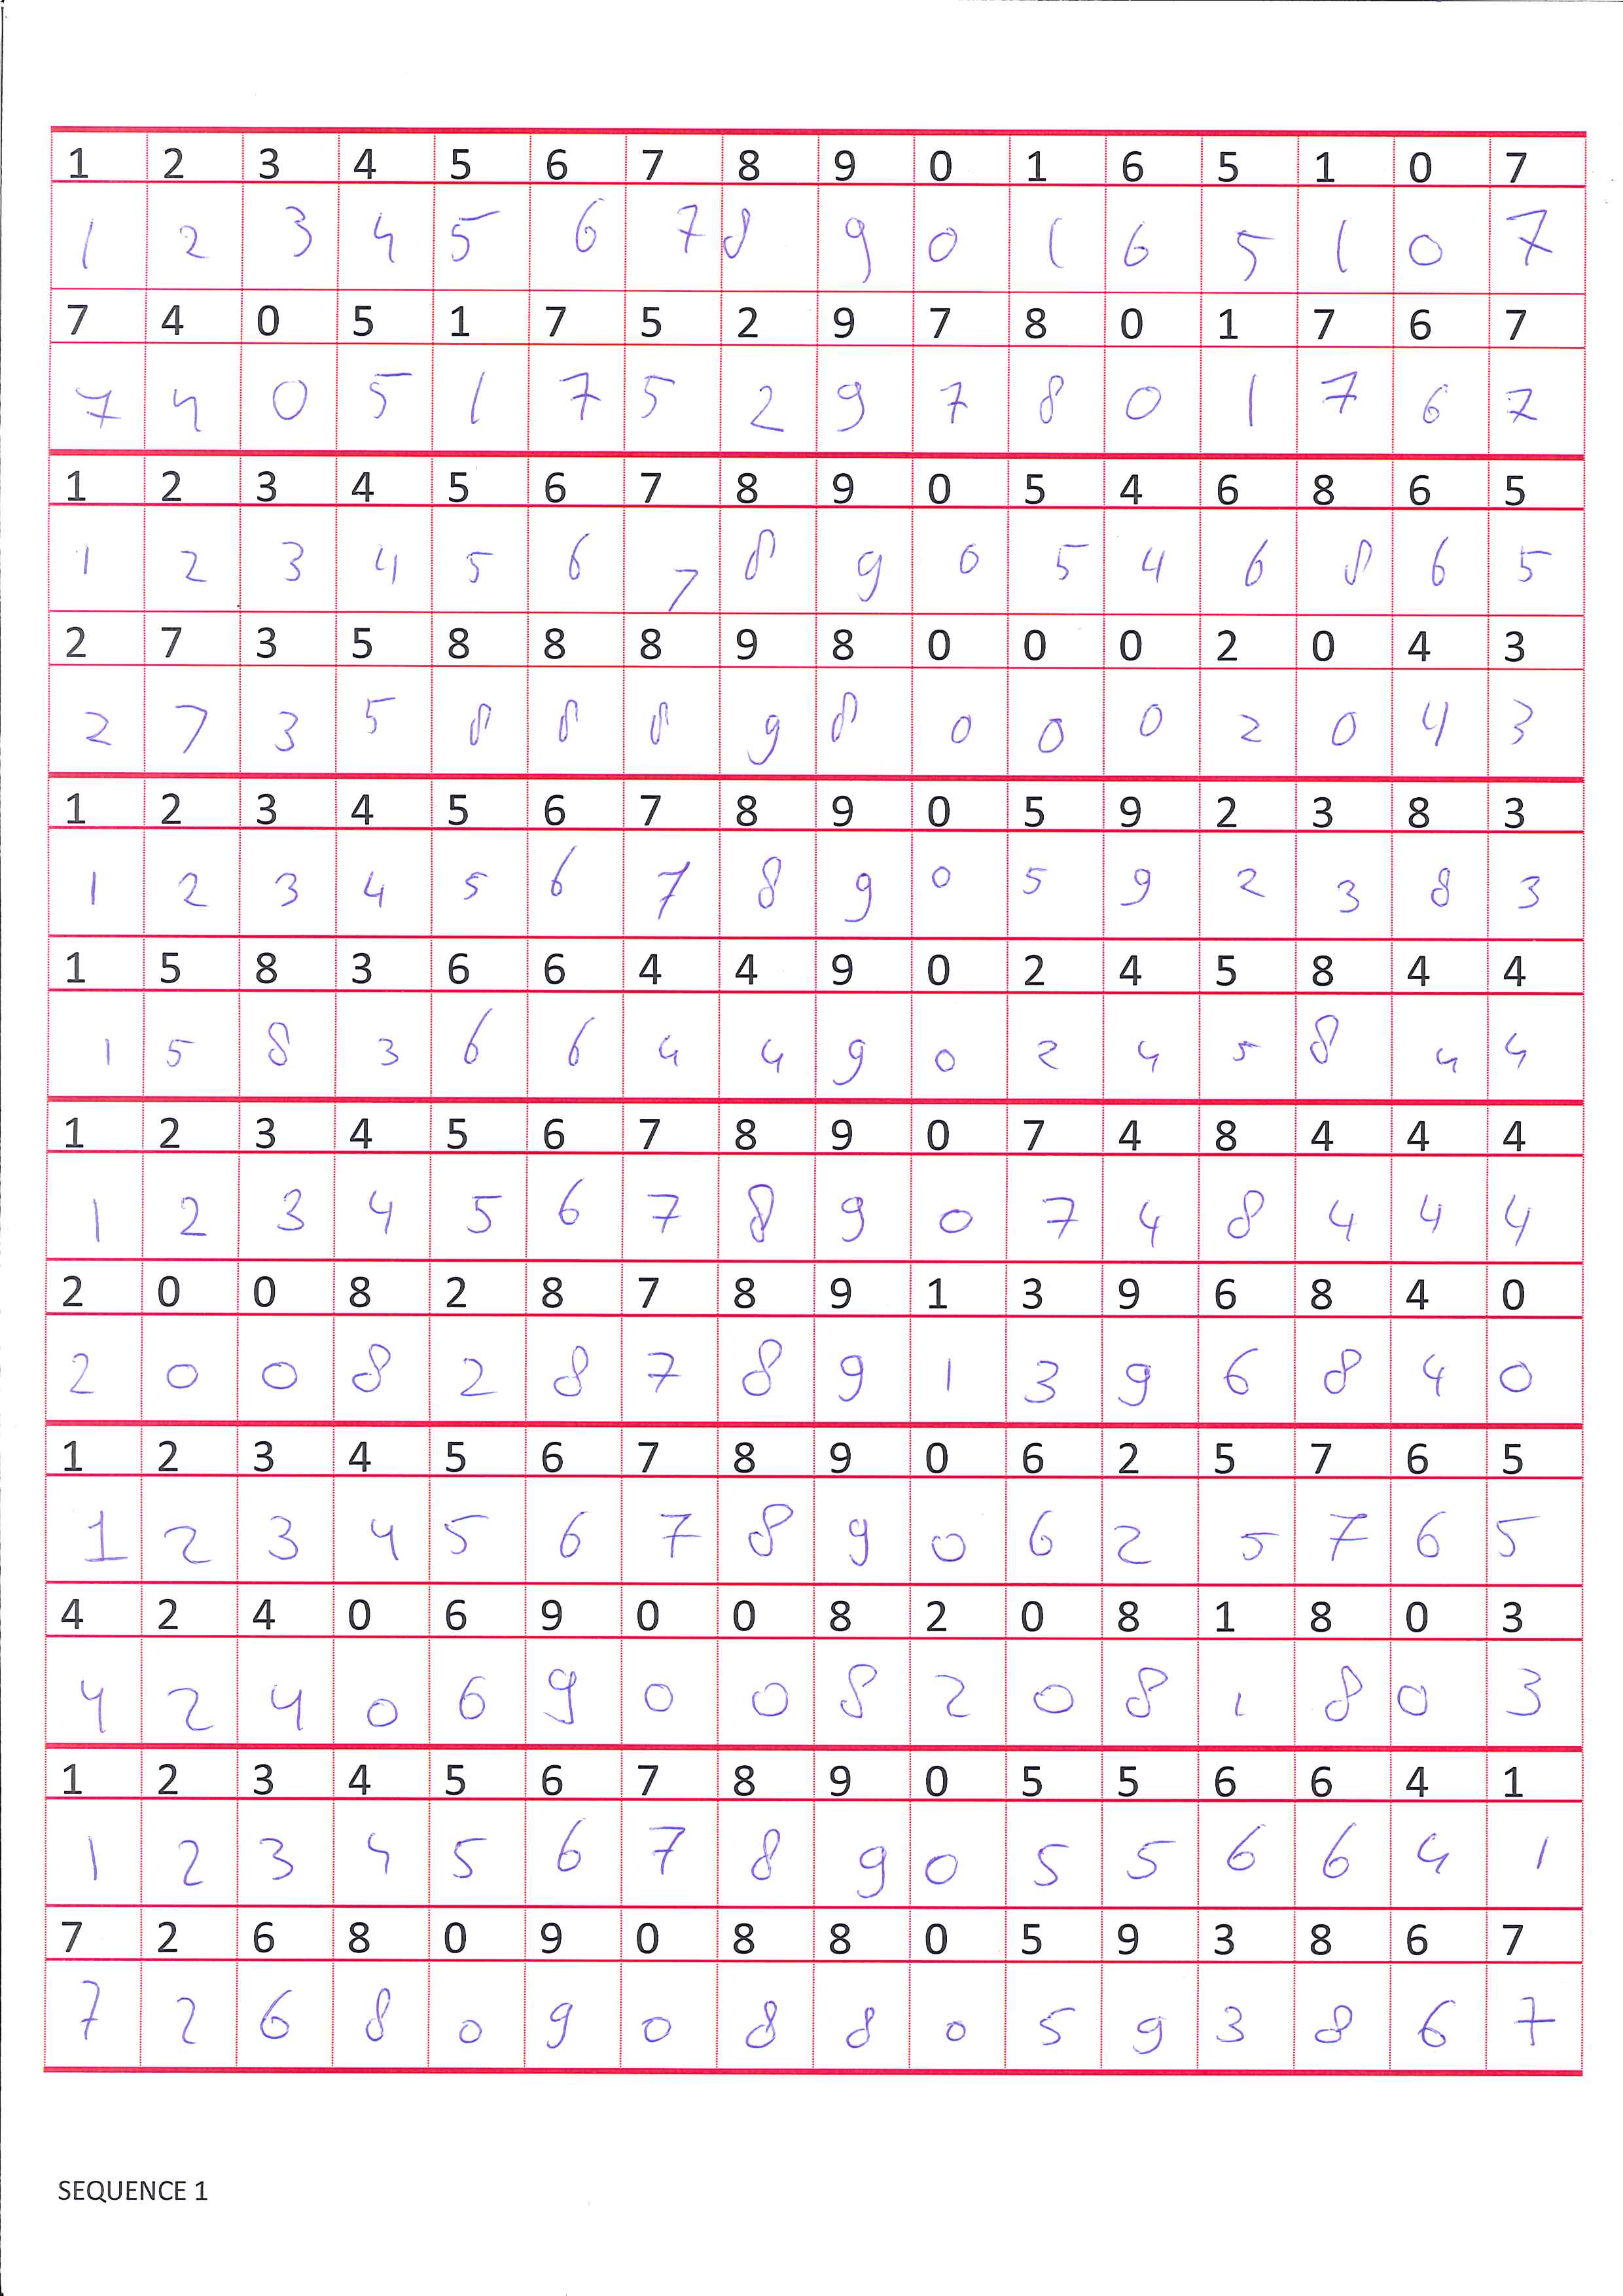 1 2 3 4 5 6 7 8 9 0 1 6 5 1 0 7
1 2 3 4 5 6 7 8 9 0 1 6 5 1 0 7
7 4 0 5 1 7 5 2 9 7 8 0 1 7 6 7
7 4 0 5 1 7 5 2 9 7 8 0 1 7 6 7
1 2 3 4 5 6 7 8 9 0 5 4 6 8 6 5
1 2 3 4 5 6 7 8 9 0 5 4 6 8 6 5
2 7 3 5 8 8 8 9 8 0 0 0 2 0 4 3
2 7 3 5 8 8 8 9 8 0 0 0 2 0 4 3
1 2 3 4 5 6 7 8 9 0 5 9 2 3 8 3
1 2 3 4 5 6 7 8 9 0 5 9 2 3 8 3
1 5 8 3 6 6 4 4 9 0 2 4 5 8 4 4
1 5 8 3 6 6 4 4 9 0 2 4 5 8 4 4
1 2 3 4 5 6 7 8 9 0 7 4 8 4 4 4
1 2 3 4 5 6 7 8 9 0 7 4 8 4 4 4
2 0 0 8 2 8 7 8 9 1 3 9 6 8 4 0
2 0 0 8 2 8 7 8 9 1 3 9 6 8 4 0
1 2 3 4 5 6 7 8 9 0 6 2 5 7 6 5
1 2 3 4 5 6 7 8 9 0 6 2 5 7 6 5
4 2 4 0 6 9 0 0 8 2 0 8 1 8 0 3
4 2 4 0 6 9 0 0 8 2 0 8 1 8 0 3
1 2 3 4 5 6 7 8 9 0 5 5 6 6 4 1
1 2 3 4 5 6 7 8 9 0 5 5 6 6 4 1
7 2 6 8 0 9 0 8 8 0 5 9 3 8 6 7
7 2 6 8 0 9 0 8 8 0 5 9 3 8 6 7
SEQUENCE 1